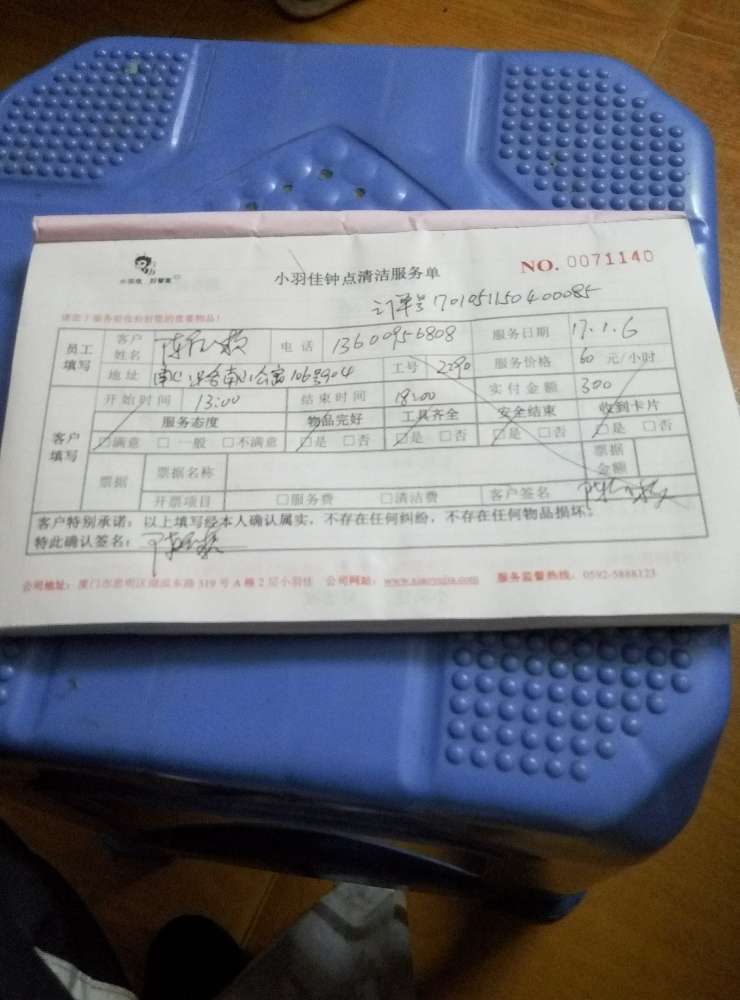 小羽佳 好管家
小羽佳钟点清洁服务单 NO. 0071140
订单号 701951150400085
员工填写 客户姓名 电话 13600956808 服务日期 17.1.6
地址 工号 2290 服务价格 60 元/小时
开始时间 13:00 结束时间 18:00 实付金额 300
客户填写 服务态度 物品完好 工具齐全 安全结束 收到卡片
□满意 □一般 □不满意 □是 □否 □是 □否 □是 □否 □是 □否
票据 票据名称 票据金额
开票项目 □服务费 □清洁费 客户签名
客户特别承诺：以上填写经本人确认属实，不存在任何纠纷，不存在任何物品损坏。
特此确认签名：
公司地址：厦门市思明区湖滨东路 319 号 A 幢 2 层小羽佳 公司网站： 服务监督热线：0592-5888123